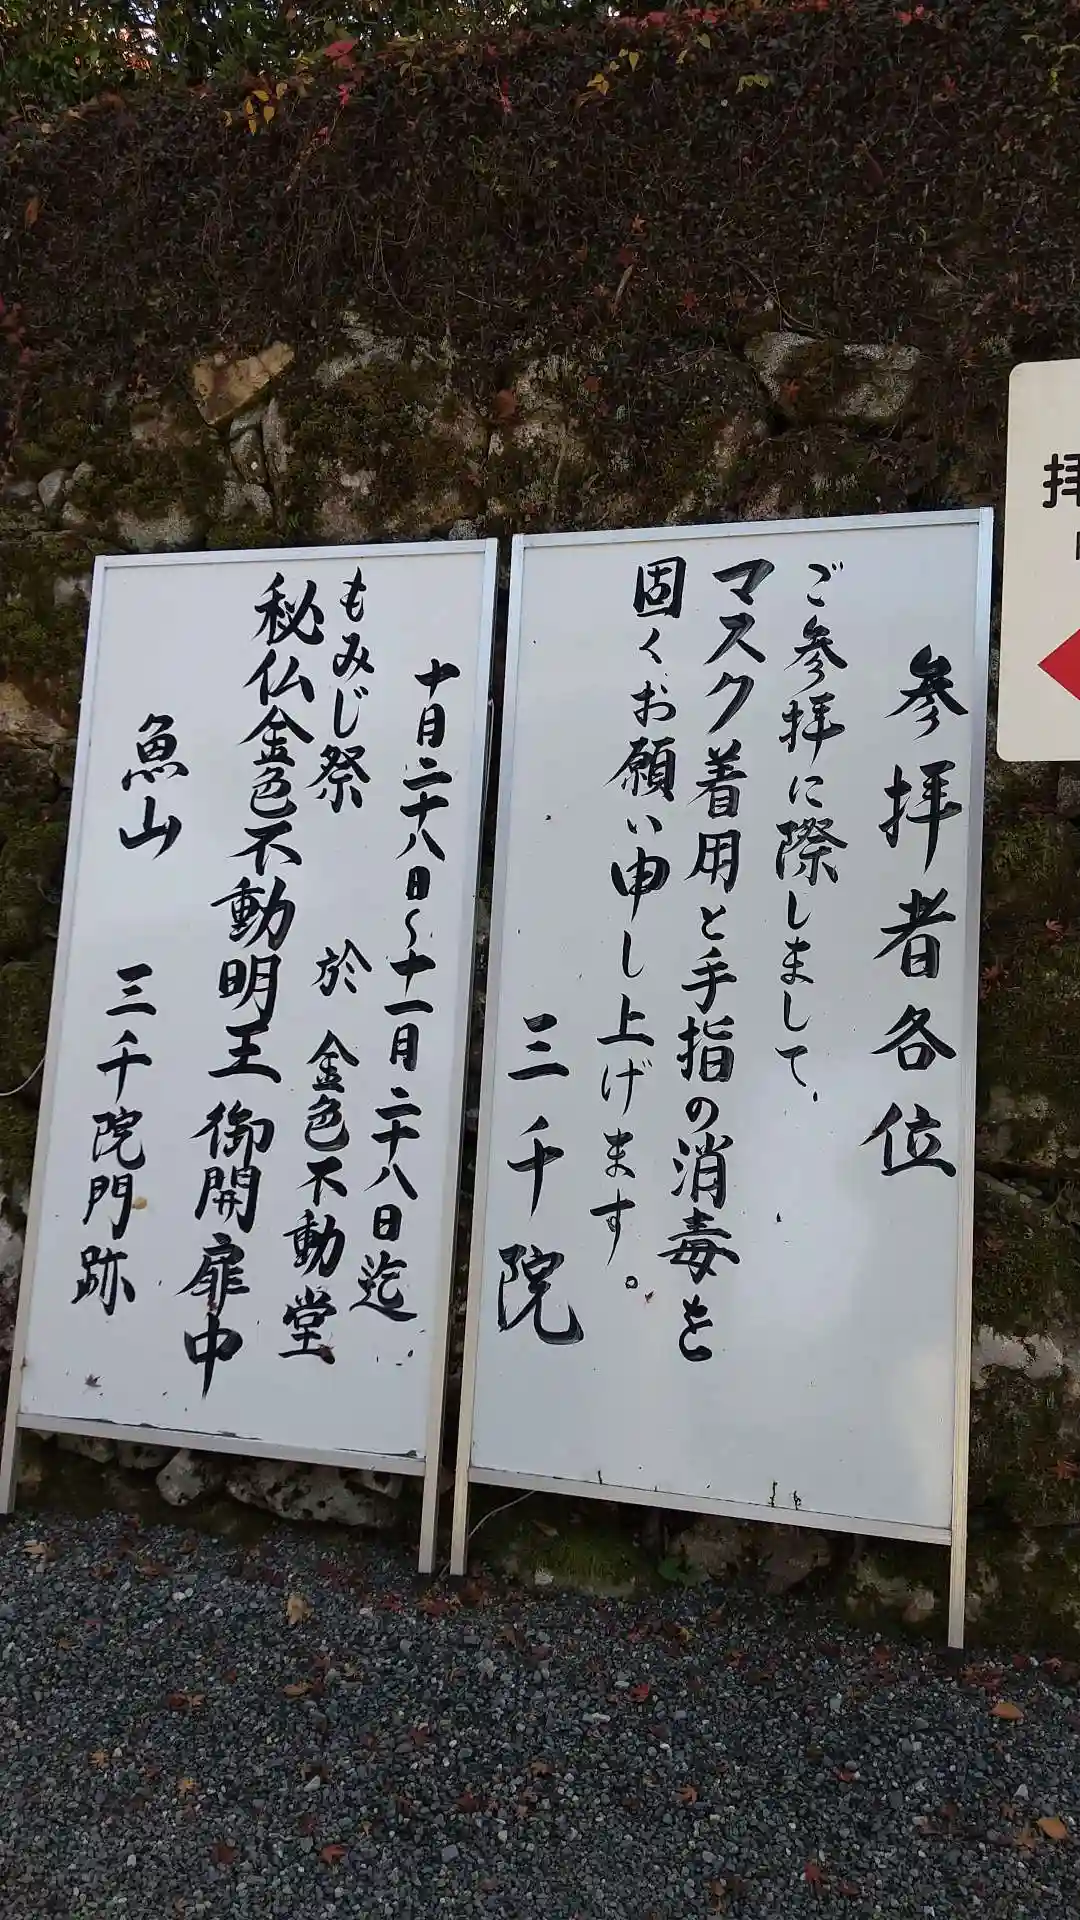 参拝者各位
ご参拝に際しまして、
マスク着用と手指の消毒を
固くお願い申し上げます。
三千院
十月二十八日～十一月二十八日迄
もみじ祭 於 金色不動堂
秘仏金色不動明王御開扉中
魚山 三千院門跡
拝